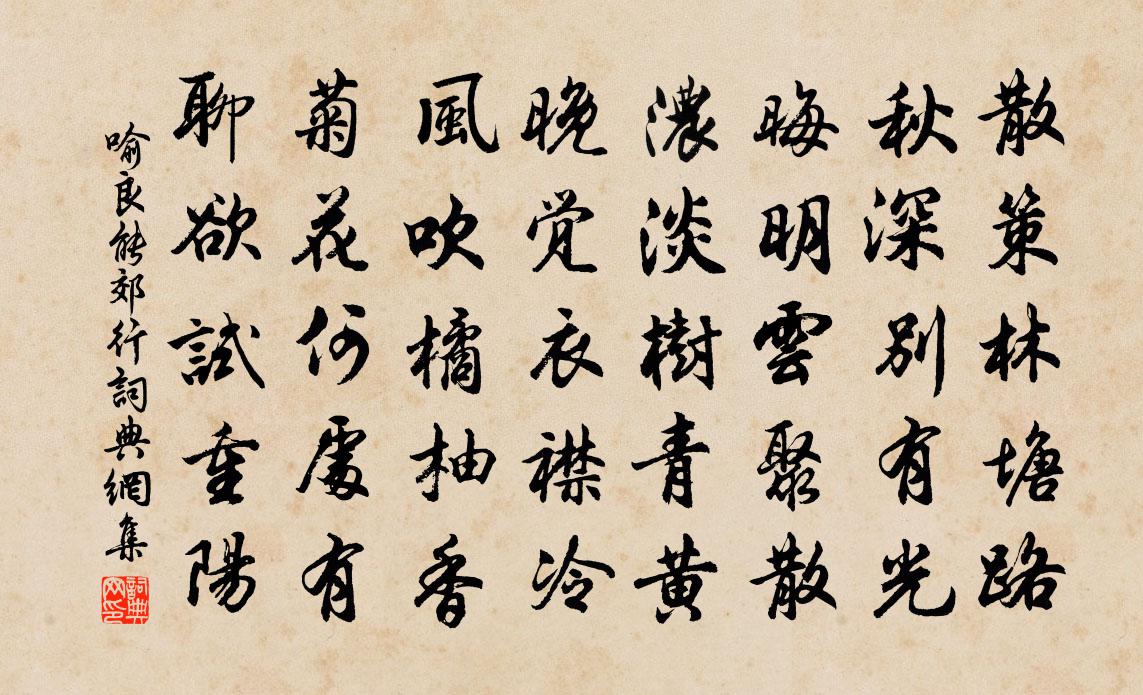 散策林塘路
秋深别有光
晦明雲聚散
濃淡樹青黄
晚覺衣襟冷
風吹橘柚香
菊花何處有
聊欲試重陽
喻良能郊行詞典網集
詞典网印